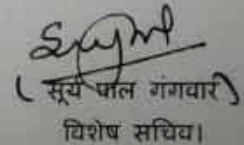 ( सूर्य पाल गंगवार )
विशेष सचिव।